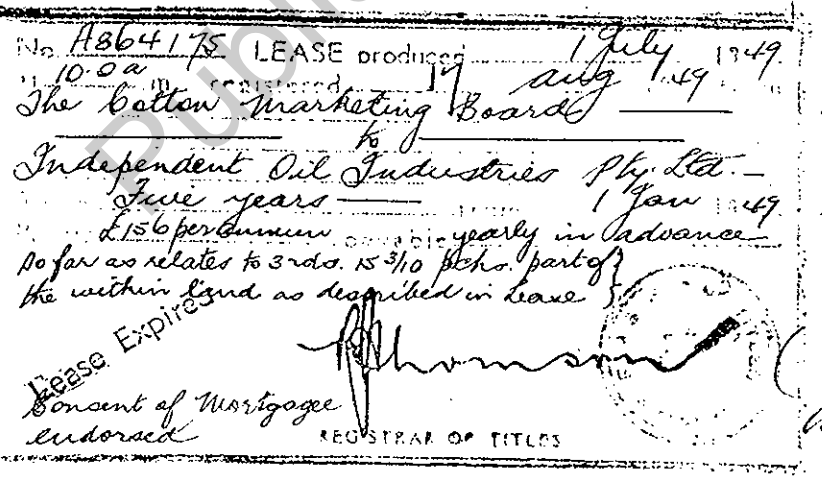 No. A864175 LEASE produced 1 July 1949
at 10.0 a m registered 17 Aug 49
The Cotton Marketing Board
to
Independent Oil Industries Pty. Ltd.
Five years from 1 Jan 1949
£156 per annum payable yearly in advance
so far as relates to 3 rds. 15 3/10 pchs. part of
the within land as described in Lease
Lease Expired
Thomson
Consent of Mortgagee
endorsed
REGISTRAR OF TITLES
Public